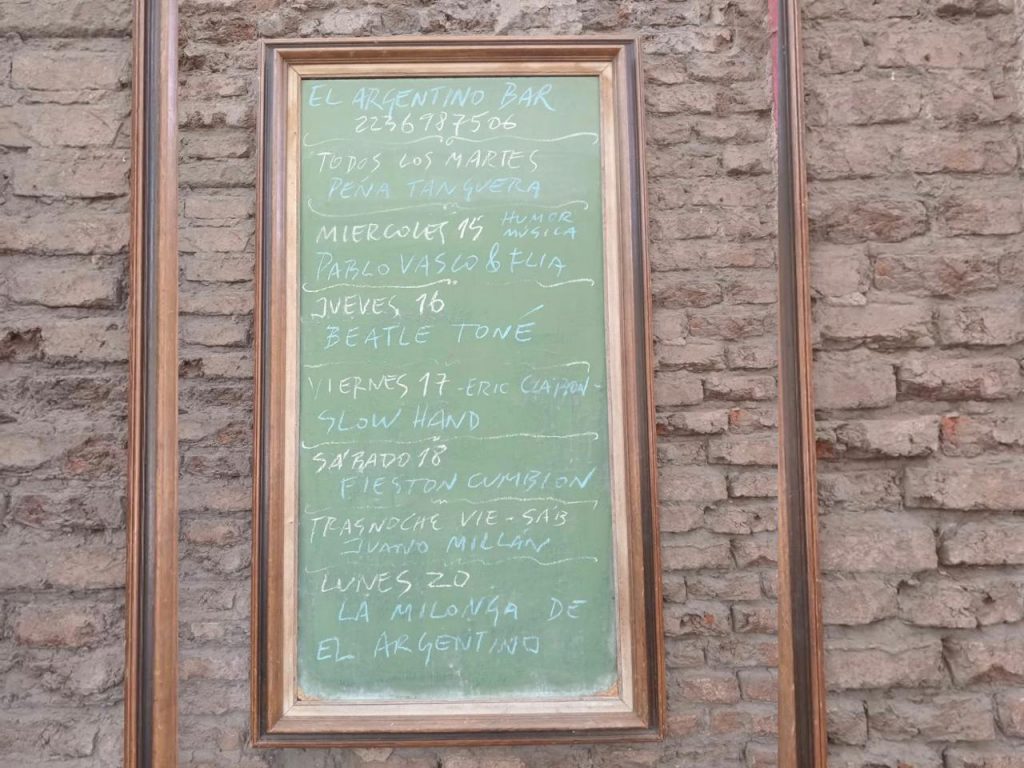 EL ARGENTINO BAR
2236987506
TODOS LOS MARTES
PEÑA TANGUERA
MIERCOLES 15 HUMOR
MÚSICA
PABLO VASCO & FLIA
JUEVES 16
BEATLE TONÉ
VIERNES 17 - ERIC CLAPTON -
SLOW HAND
SÁBADO 18
FIESTON CUMBION
TRASNOCHE VIE - SÁB
JUANO MILLAN
LUNES 20
LA MILONGA DE
EL ARGENTINO